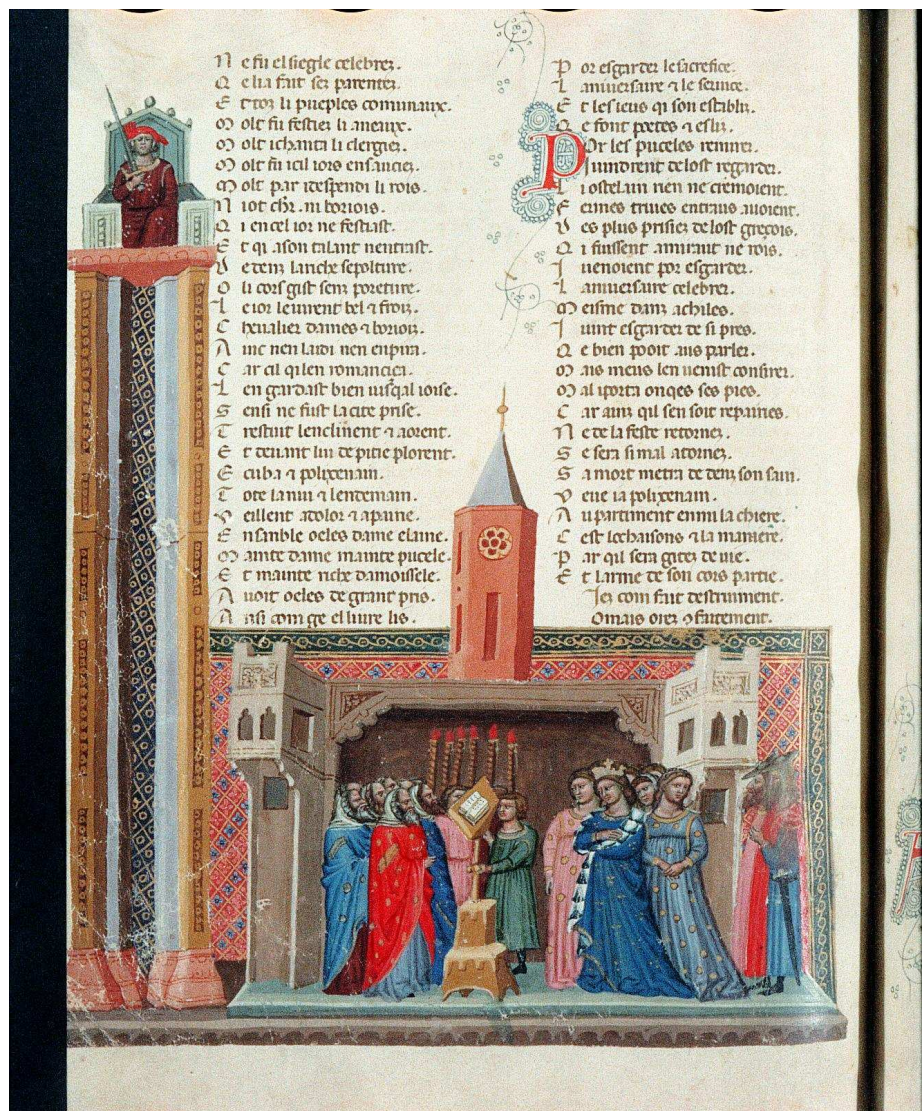 N e fu el siegle celebrez.
Q e lia fait sez parentez.
E t toz li pueples comunaux.
M olt fu festiez li aneaux.
M olt ichanta li clergiez.
M olt fu icil iors ensauciez.
M olt par idespendi li rois.
N iot chr. ni boriois.
Q i en cel ior ne festiast.
E t qi a son talant nentrast.
V e denz la riche sepolture.
O li cors gist senz poreture.
L e ior le uirent bel & froiz.
C heualier dames & boriois.
A inc nen laidi nen enpira.
C ar cil qi len romancier.
L en gardast bien iusqal ioise.
S ensi ne fust la cite prise.
T restuit lenclinent & aorent.
E t deuant lui de pitie plorent.
E cuba & polixenain.
T ote la nuit & lendemain.
V eillent a dolor & a paine.
E nsemble oeles dame elaine.
M ainte dame mainte pucele.
E t mainte riche damoisele.
A uoit oeles de grant pris.
A nsi com ge el liure lis.
P or esgarder le sacrefice.
L aniuersaire & le seruice.
E t les ieus qi son establi.
Q e font poetes & esliz.
P Or les puceles remirer.
V uindrent de lost regarder.
L i ostelain rien ne cremoient.
F ermes triues entraus auoient.
D es plus prisiez de lost grezois.
Q i fussent amirant ne rois.
I uenoient por esgarder.
L aniuersaire celebrer.
M eisme danz achiles.
I uint esgarder de si pres.
Q e bien pooit a aus parler.
M ais meus len uenist consirer.
M al iporta onqes ses piez.
C ar ainz qil sen soit repairiez.
N e de la feste retornez.
S e sera si mal atornez.
S a mort metra dedenz son sain.
V eue ia polixenain.
A partiment enmi la chiere.
C est lochaisons & la maniere.
P ar qil sera gitez de uie.
E t larme de son cors partie.
Iez com fait destruiment.
Omais orez & faitement.